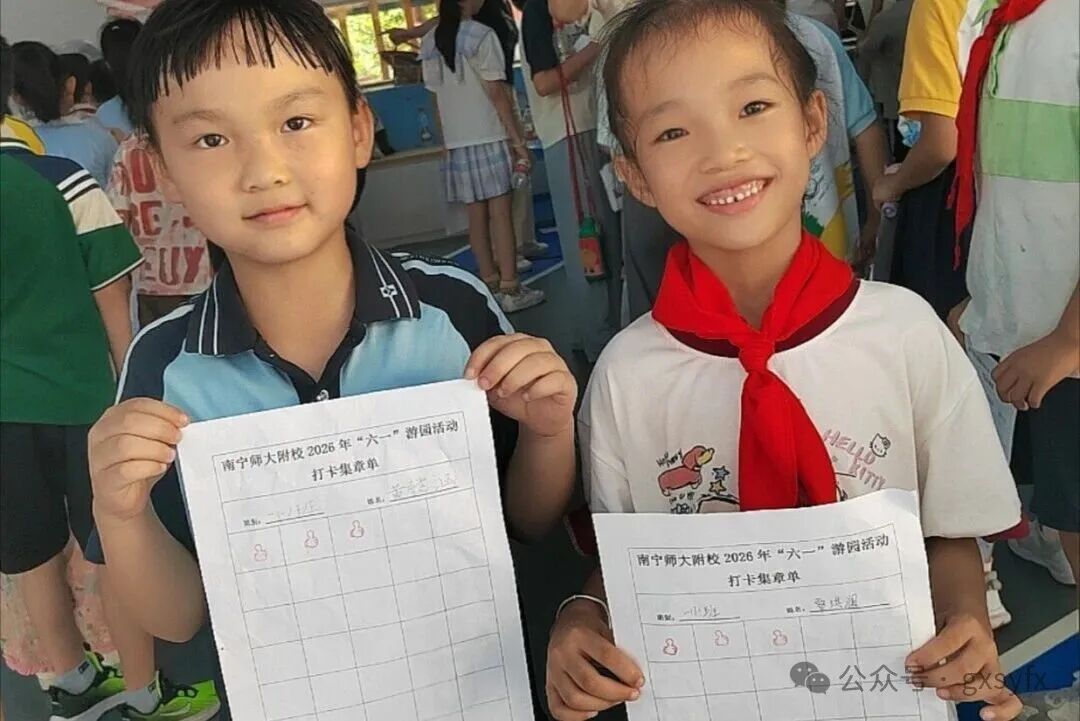 南宁师大附校2026年“六一”游园活动
打卡集章单
班级:
姓名:
南宁师大附校2026年“六一”游园活动
打卡集章单
班级:
姓名:
HELLO
KITTY
公众号 · gxsyfx